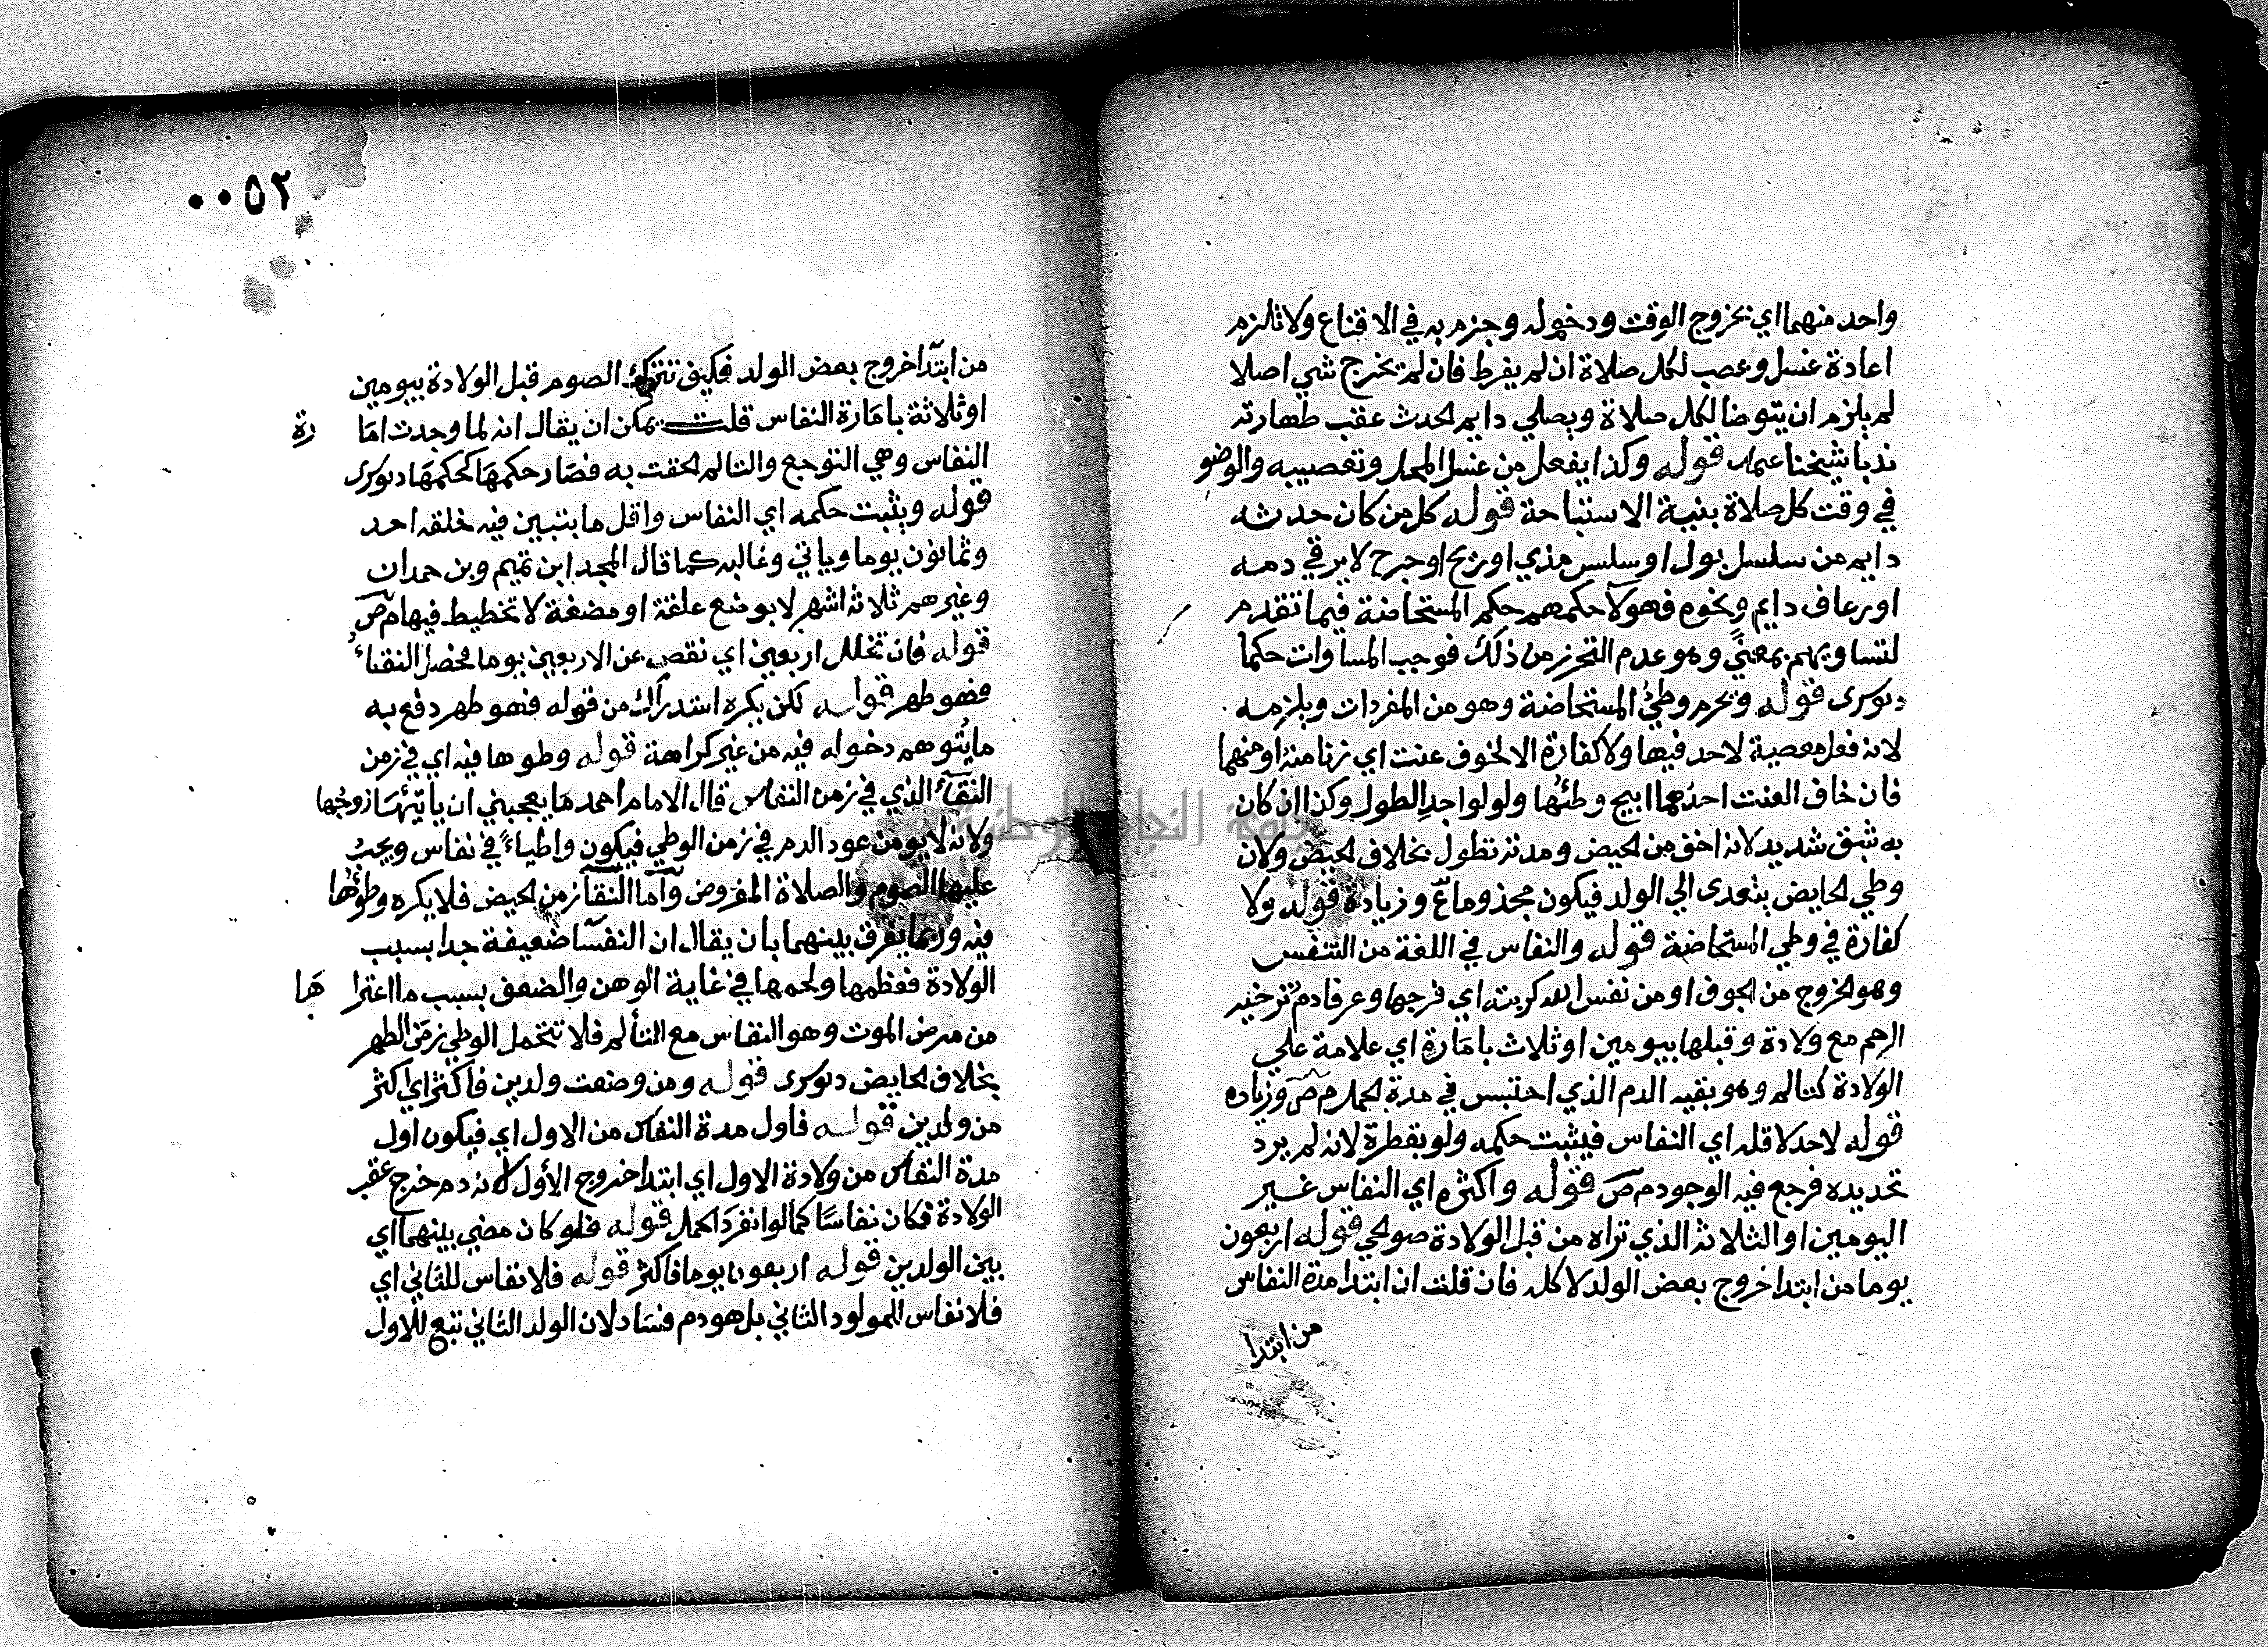 واحد منهما اي بخروج الوقت ودخوله وجزم به في الاقناع ولا تلزم
اعادة غسل وعصب لكل صلاة ان لم يفرط فان لم يخرج شي اصلا
لم يلزم ان يتوضا لكل صلاة ويصلي دايم الحدث عقب طهارته
ندبا شيخنا عمله قوله وكذا يفعل من غسل المحل وتعصيبه والوضو
في وقت كل صلاة بنية الاستباحة قوله كل من كان حدثه
دايم من سلسل بول او سلس مذي او ريح او جرح لا يرقي دمه
او رعاف دايم ونحوه فهولآ حكمهم حكم المستحاضة فيما تقدم
لتساويهم بمعنيً وهو عدم التحرز من ذلك فوجب المساوات حكما
دنوكرى قوله ويحرم وطئ المستحاضة وهو من المفردات ويلزمه
لانه فعل معصية لاحد فيها ولا كفارة الا لخوف عنت اي زنا منه او منها
فان خاف العنت احدهما ابيح وطئها ولو لواجد الطول وكذا ان كان
به شبق شديد لانه اخف من الحيض ومدته تطول بخلاف الحيض ولان
وطي الحايض يتعدى الي الولد فيكون مجذوما ع وزيادة قوله ولا
كفارة في وطي المستحاضة قوله والنفاس في اللغة من التنفس
وهو الخروج من الجوف او من نفس الله كربته اي فرجها وعرفا دم ترخيه
الرحم مع ولادة وقبلها بيومين او ثلاث بامارة اي علامة علي
الولادة كتالم وهو بقيه الدم الذي احتبس في مدة الحمل م ص وزياده
قوله لاحد لاقله اي النفاس فيثبت حكمه ولو بقطرة لانه لم يرد
تحديده فرجع فيه الوجود م ص قوله واكثره اي النفاس غير
اليومين او الثلاثة الذي تراه من قبل الولادة صوالحي قوله اربعون
يوما من ابتدا خروج بعض الولد لا كله فان قلت ان ابتدا مدة النفاس
من ابتدا
٠٠٥٢
من ابتدآ خروج بعض الولد فكيف تترك الصوم قبل الولادة بيومين
او ثلاثة بامارة النفاس قلت يمكن ان يقال انه لما وجدت اما رة
النفاس وهي التوجع والتالم لحقت به فصار حكمها كحكمها دنوكرى
قوله ويثبت حكمه اي النفاس واقل ما يتبين فيه خلقه احد
وثمانون يوما وياتي وغالبه كما قال المجد ابن تميم وبن حمدان
وغيرهم ثلاثة اشهر لا بوضع علقة او مضغة لا تخطيط فيها م ص
قوله فان تخلل اربعين اي نقص عن الاربعين يوما فحصل النقاء
فهو طهر قوله لكن يكره استدراك من قوله فهو طهر دفع به
ما يتوهم دخوله فيه من غير كراهة قوله وطوها فيه اي في زمن
النقآء الذي في زمن النفاس قال الامام احمد ما يعجبني ان ياتيها زوجها
ولانه لا يومن عود الدم في زمن الوطي فيكون واطياً في نفاس ويجب
عليها الصوم والصلاة المفروض وأما النقآ زمن الحيض فلا يكره وطوها
فيه وربما يفرق بينهما بان يقال ان النفسآ ضعيفة جدا بسبب
الولادة فعظمها ولحمها في غاية الوهن والضعف بسبب ما اعترا ها
من مرض الموت وهو النفاس مع التألم فلا تتحمل الوطي زمن الطهر
بخلاف الحايض دنوكرى قوله ومن وضعت ولدين فاكثر اي اكثر
من ولدين قوله فاول مدة النفاس من الاول اي فيكون اول
مدة النفاس من ولادة الاول اي ابتدا خروج الأول لانه دم خرج عقب
الولادة فكان نفاسًا كما لو انفرد الحمل قوله فلو كان مضي بينهما اي
بين الولدين قوله اربعون يوما فاكثر قوله فلا نفاس للثاني اي
فلا نفاس للمولود الثاني بل هو دم فساد لان الولد الثاني تبع للاول
جامعة النجاح الوطنية